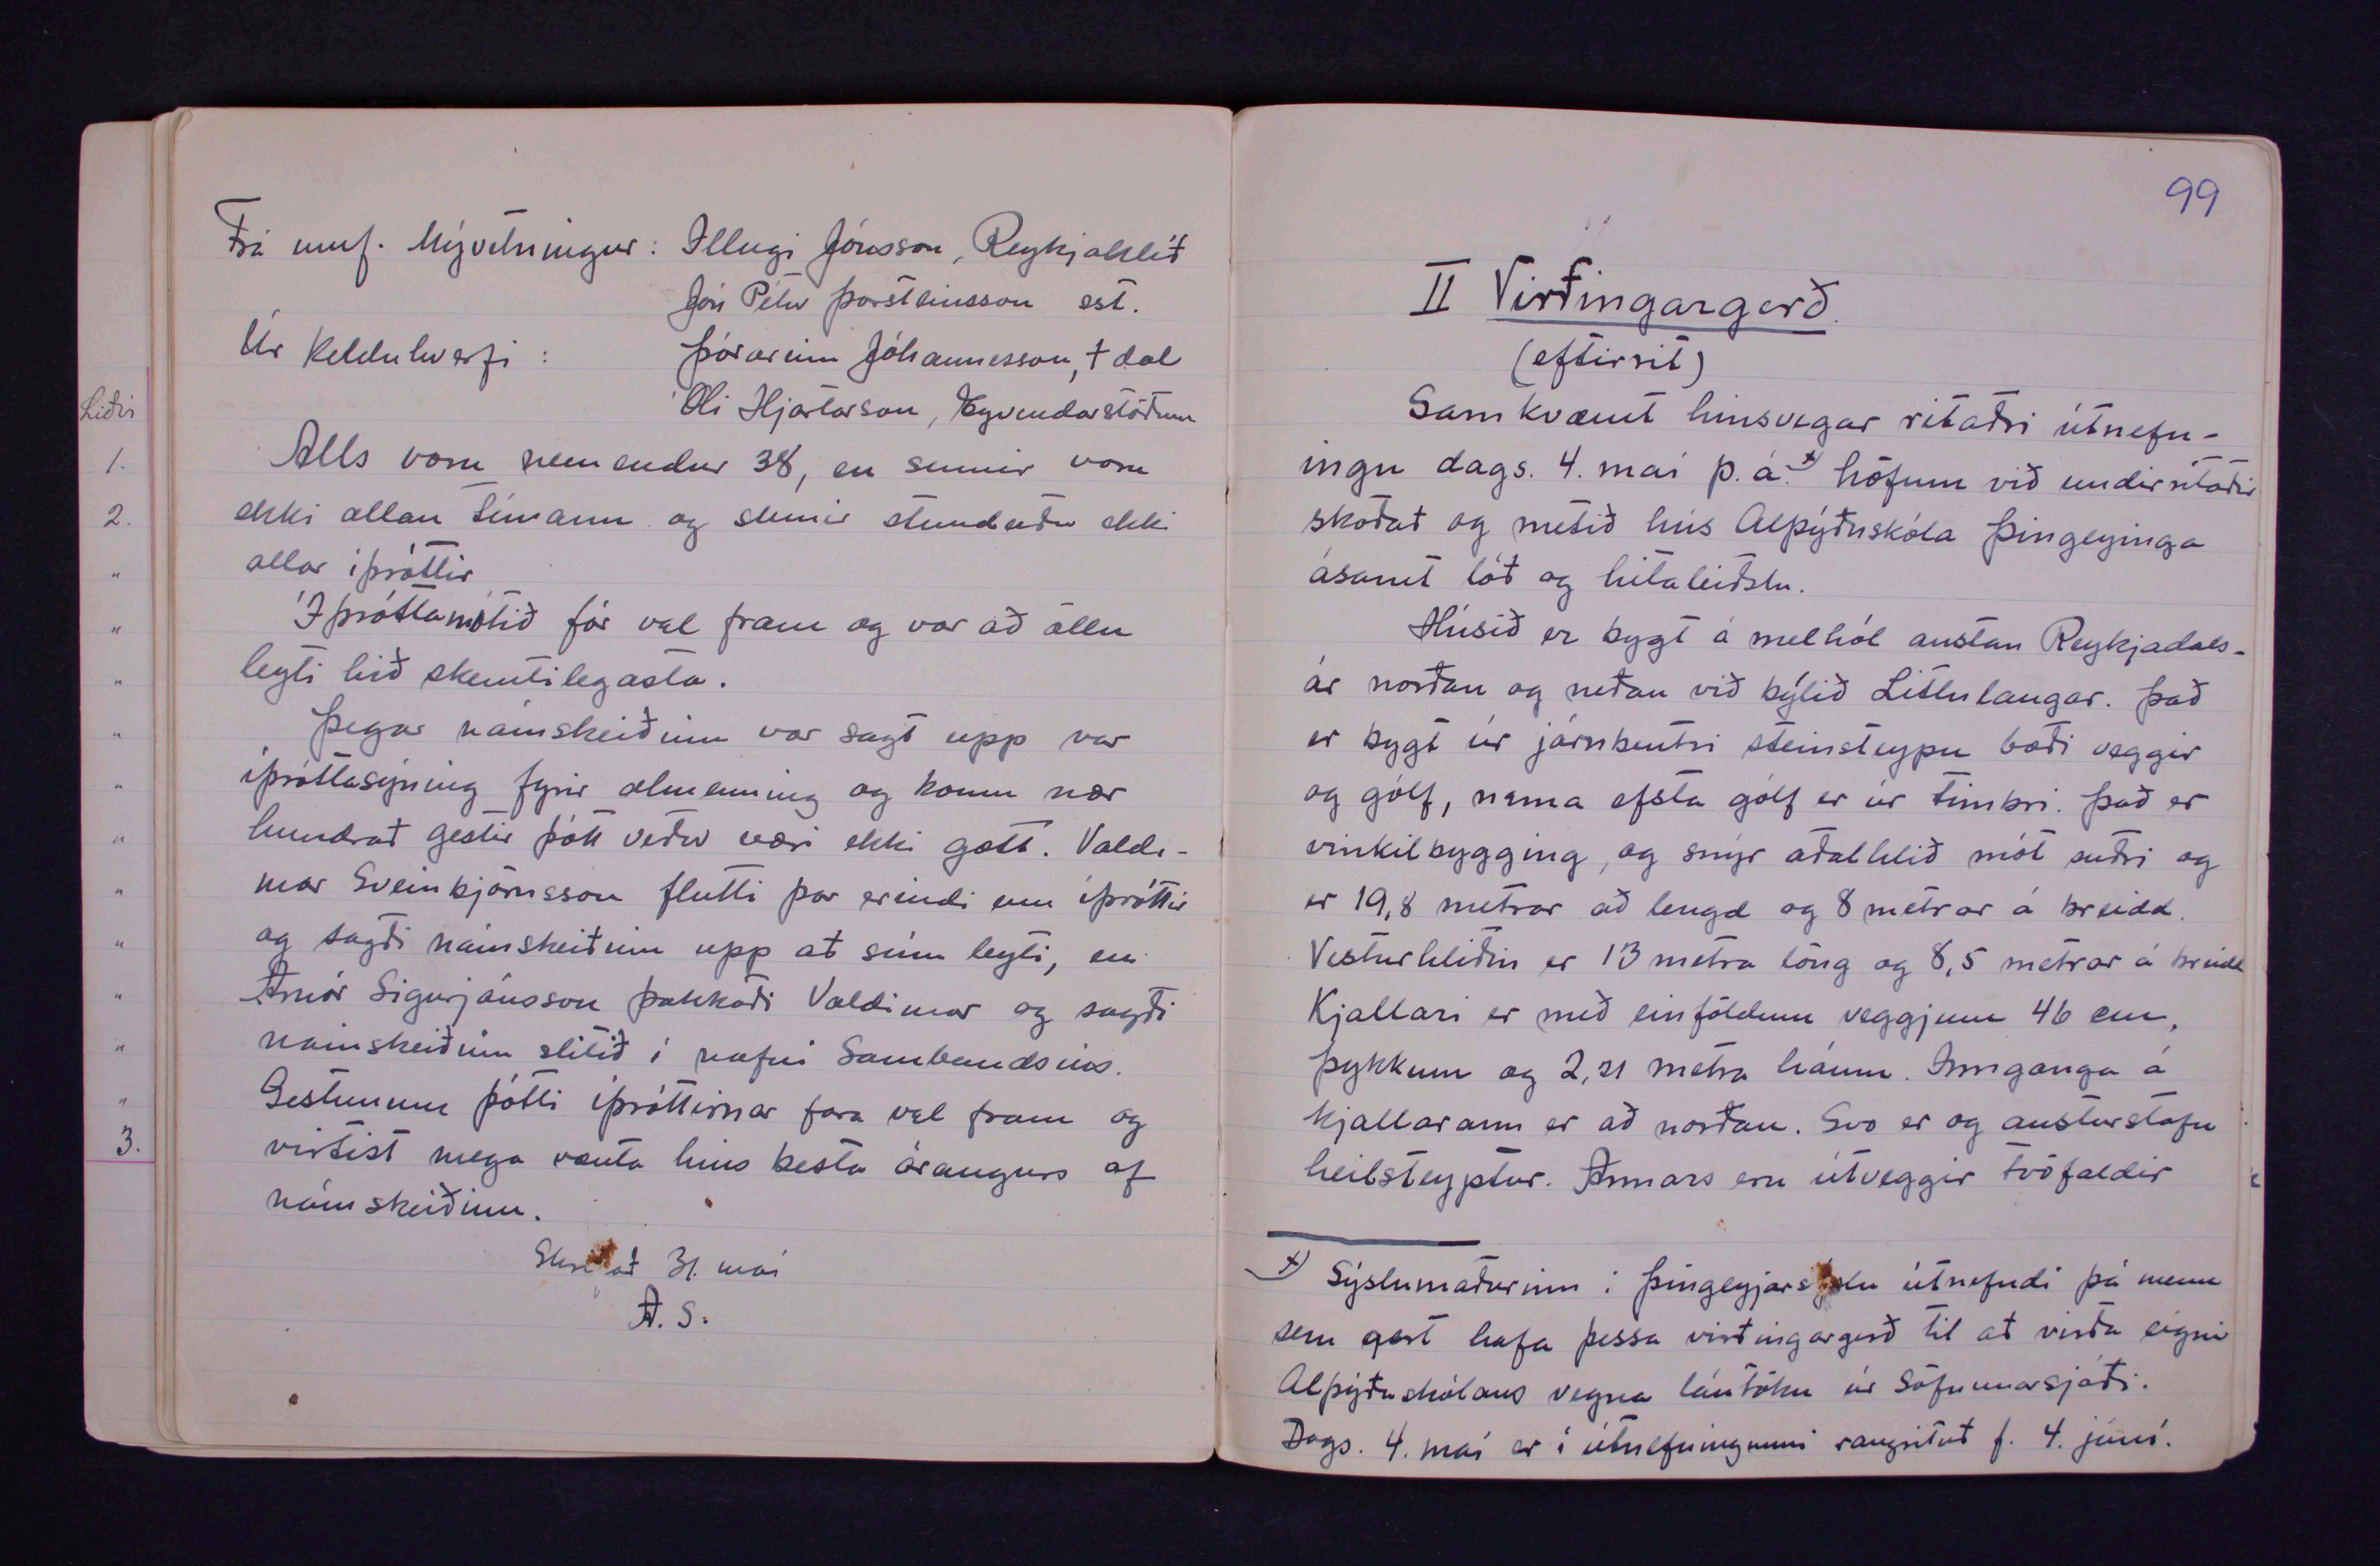 Frá umf. Mývetningur: Illugi Jónsson, Reykjahlíð
Jón Pétur Þorsteinsson est.
Úr Kelduhverfi: Þórarinn Jóhannesson, † dal
Óli Hjartarson, Eyvendarstöðum
Alls voru nemendur 38, en sumir voru
ekki allan tímann og sumir stunduðu ekki
allar íþróttir
Íþróttamótið fór vel fram og var að öllu
leyti hið skemtilegasta.
Þegar námskeiðinu var sagt upp var
íþróttasýning fyrir almenning og komu nær
hundrað gestir þótt veður væri ekki gott. Valdi-
mar Sveinbjörnsson flutti þar erindi um íþróttir
og sagði námskeiðinu upp að sínu leyti, en
Arnór Sigurjónsson þakkaði Valdimar og sagði
námskeiðinu slitið í nafni Sambandsins.
Gestunum þótti íþróttirnar fara vel fram og
virtist mega vænta hins besta árangurs af
námskeiðinu.
Skrifað 31. maí
A. S.
Liðir
1.
2.
"
"
"
"
"
"
"
"
"
"
"
3.
99
II Virðingargerð.
(eftirrit)
Samkvæmt hinsvegar ritaðri útnefn-
ingu dags. 4. maí þ. á. x) höfum við undirritaðir
skoðað og metið hús Alþýðuskóla Þingeyinga
ásamt lóð og hitaleiðslu.
Húsið er bygt á melhól austan Reykjadals-
ár norðan og neðan við býlið Litlulaugar. Það
er bygt úr járnbentri steinsteypu bæði veggir
og gólf, nema efsta gólf er úr timbri. Það er
vinkilbygging, og snýr aðalhlið mót suðri og
er 19,8 metrar að lengd og 8 metrar á breidd.
Vesturhliðin er 13 metra löng og 8,5 metrar á breidd
Kjallari er með einföldum veggjum 46 cm.
þykkum og 2,21 metra háum. Innganga á
kjallarann er að norðan. Svo er og austurstafn
heilsteyptur. Annars eru útveggir tvöfaldir
x) Sýslumaðurinn í Þingeyjarsýslu útnefndi þá menn
sem gert hafa þessa virðingargerð til að virða eignir
Alþýðuskólans vegna lántöku úr Söfnunarsjóði.
Dags. 4. maí er í útnefningunni rangritað f. 4. júní.